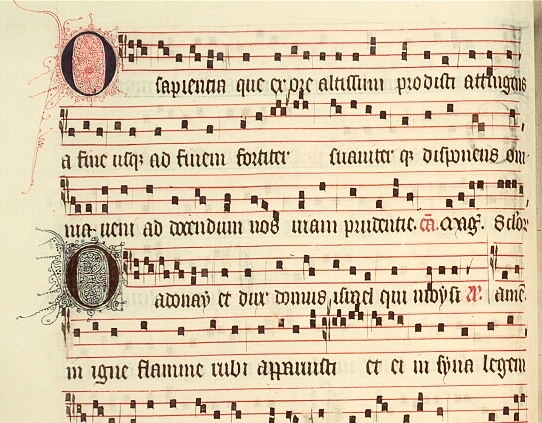 O sapientia que ex ore altissimi prodisti attingens
a fine usq; ad finem fortiter suauiter q; disponens om
nia ueni ad docendum nos uiam prudentie. ca. Mag.
O adonay et dux domus isrl qui
in igne flamme rubi apparuisti et ei in syna legem